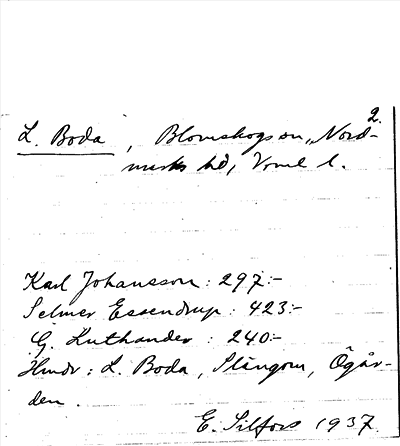 2.
L. Boda, Blomskogs sn, Nord-
marks hd, Verml l.
Karl Johansson: 297:-
Selmer Essendrup: 423:-
G. Luthander: 240:-
Hmdr: L. Boda, Slängom, Ögår-
den.
E. Silfors 1937.